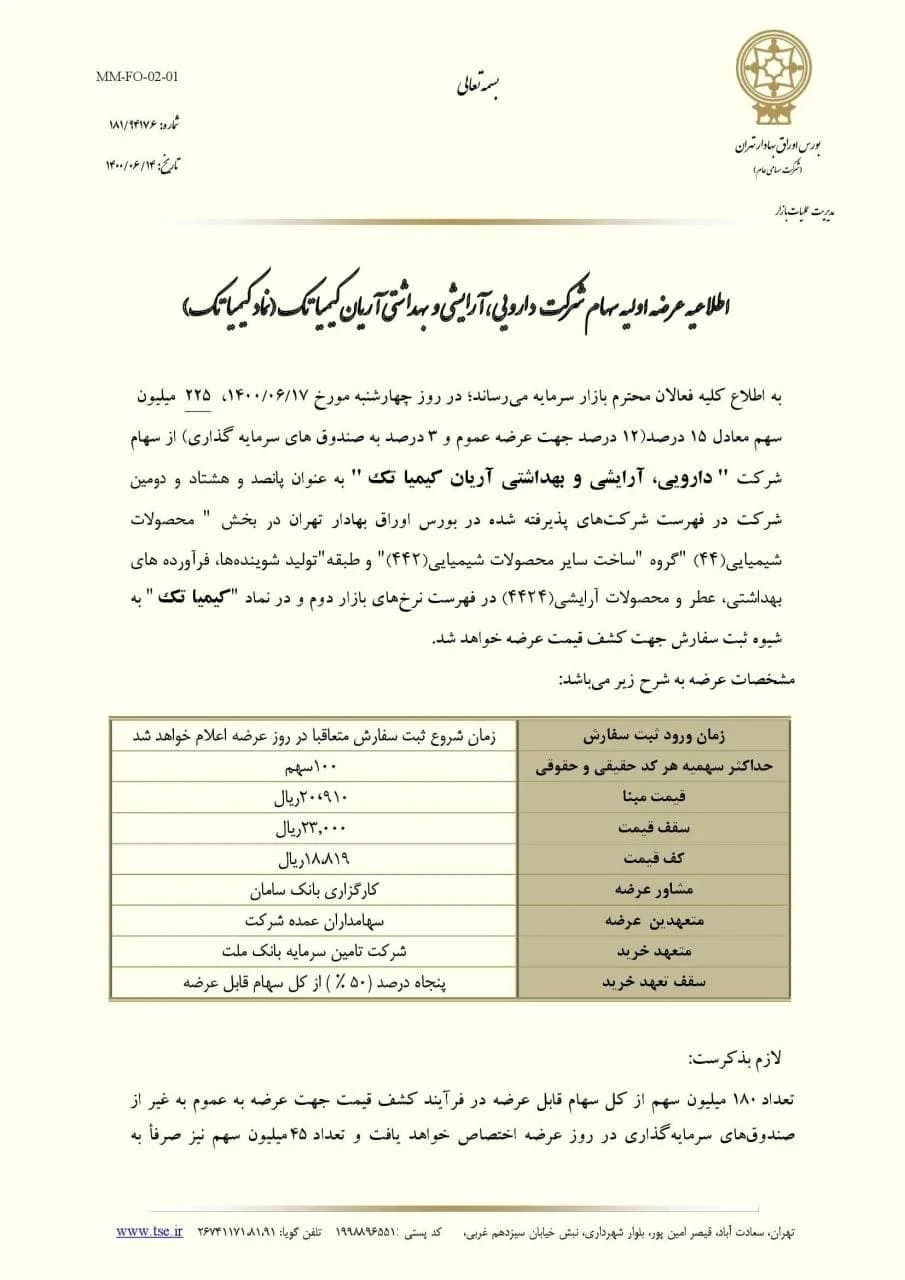 MM-FO-02-01
بسمه تعالی
شماره: ۱۸۱/۹۴۱۷۶
تاریخ: ۱۴۰۰/۰۶/۱۴
بورس اوراق بهادار تهران
(شرکت سهامی عام)
مدیریت عملیات بازار
اطلاعیه عرضه اولیه سهام شرکت دارویی، آرایشی و بهداشتی آریان کیمیا تک (نماد کیمیاتک)
به اطلاع کلیه فعالان محترم بازار سرمایه می‌رساند؛ در روز چهارشنبه مورخ ۱۴۰۰/۰۶/۱۷، ۲۲۵ میلیون
سهم معادل ۱۵ درصد(۱۲ درصد جهت عرضه عموم و ۳ درصد به صندوق های سرمایه گذاری) از سهام
شرکت " دارویی، آرایشی و بهداشتی آریان کیمیا تک " به عنوان پانصد و هشتاد و دومین
شرکت در فهرست شرکت‌های پذیرفته شده در بورس اوراق بهادار تهران در بخش " محصولات
شیمیایی(۴۴) "گروه "ساخت سایر محصولات شیمیایی(۴۴۲)" و طبقه"تولید شوینده‌ها، فرآورده های
بهداشتی، عطر و محصولات آرایشی(۴۴۲۴) در فهرست نرخ‌های بازار دوم و در نماد "کیمیا تک " به
شیوه ثبت سفارش جهت کشف قیمت عرضه خواهد شد.
مشخصات عرضه به شرح زیر می‌باشد:
زمان ورود ثبت سفارش	زمان شروع ثبت سفارش متعاقبا در روز عرضه اعلام خواهد شد
حداکثر سهمیه هر کد حقیقی و حقوقی	۱۰۰سهم
قیمت مبنا	۲۰،۹۱۰ریال
سقف قیمت	۲۳,۰۰۰ریال
کف قیمت	۱۸،۸۱۹ریال
مشاور عرضه	کارگزاری بانک سامان
متعهدین عرضه	سهامداران عمده شرکت
متعهد خرید	شرکت تامین سرمایه بانک ملت
سقف تعهد خرید	پنجاه درصد (۵۰ ٪) از کل سهام قابل عرضه
لازم بذکرست:
تعداد ۱۸۰ میلیون سهم از کل سهام قابل عرضه در فرآیند کشف قیمت جهت عرضه به عموم به غیر از
صندوق‌های سرمایه‌گذاری در روز عرضه اختصاص خواهد یافت و تعداد ۴۵میلیون سهم نیز صرفاً به
تهران، سعادت آباد، قیصر امین پور، بلوار شهرداری، نبش خیابان سیزدهم غربی، کد پستی :۱۹۹۸۸۹۶۵۵۱ تلفن گویا: ۲۶۷۴۱۱۷۱،۸۱،۹۱ www.tse.ir